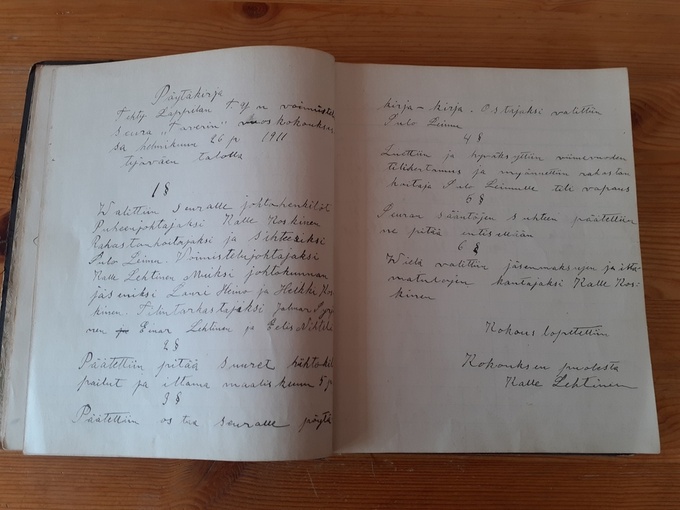 Pöytäkirja
Tehty Lappilan Ty n voimistelu
seura „Taverin” vuoskokoukses
sa helmikuun 26 p 1911
työväen talolla
1 §
Walittiin seuralle johtohenkilöt
Puheenjohtajaksi Kalle Koskinen
Rahastonhoitajaksi ja Sihteeriksi
Sulo Leimu. Woimistelujohtajaksi
Kalle Lehtinen Muiksi johtokunnan
jäseniksi Lauri Heino ja Heikki Kos
kinen. Tilintarkastajaksi Jalmar
nen Einar Lehtinen ja Eelis
2 §
Päätettiin pitää suuret
pailut ja iltama maaliskuun 5 p
3 §
Päätettiin os taa seuralle pöytä
kirja-kirja. Ostajaksi valittiin
Sulo Leimu
4 §
Luettiin ja hyväksyttiin viimevuoden
tilikertomus ja myönnettiin rahaston
hoitaja Sulo Leimulle tili vapaus
5 §
Seuran sääntöjen suhteen päätettiin
ne pitää entisellään
6 §
Wielä valittiin jäsenmaksujen ja ilta
matulojen kantajaksi Kalle Kos-
kinen
Kokous lopetettiin
Kokouksen puolesta
Kalle Lehtinen